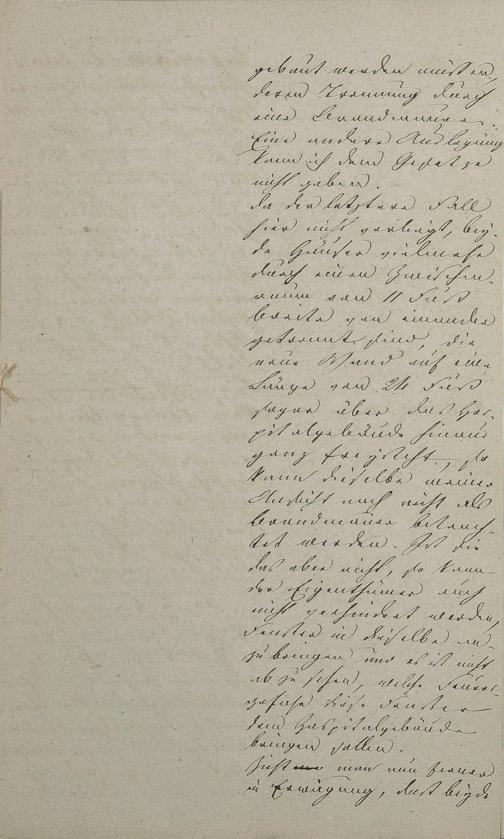 gebaut werden müssen,
deren Trennung durch
eine Brandmauer.
Eine andere Auslegung
kann ich dem Gesetze
nicht geben.
Da der letztere Fall
hier nicht vorliegt, bey-
de Häuser vielmehr
durch einen Zwischen-
raum von 11 Fuß
breite von einander
getrennt sind, die
neue Wand auf eine
Länge von 24 Fuß
sogar über das Hos-
pitalgebäude hinaus
ganz freysteht, so
kann dieselbe meiner
Ansicht nach nicht als
Brandmauer betrach-
tet werden. Ist sie
das aber nicht, so kann
der Eigenthümer auch
nicht verhindert werden,
Fenster in dieselbe an-
zubringen und es ist nicht
abzusehen, welche Feuers-
gefahr diese Fenster
dem Hospitalgebäude
bringen sollen.
Zieht man nun ferner
in Erwägung, daß beyde